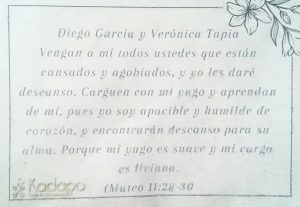 Diego Garcia y Verónica Tapia
Vengan a mi todos ustedes que están
cansados y agobiados, y yo les daré
descanso. Carguen con mi yugo y aprendan
de mi, pues yo soy apacible y humilde de
corazón, y encontrarán descanso para su
alma. Porque mi yugo es suave y mi carga
es liviana.
Kadapa
(Mateo 11:28-30